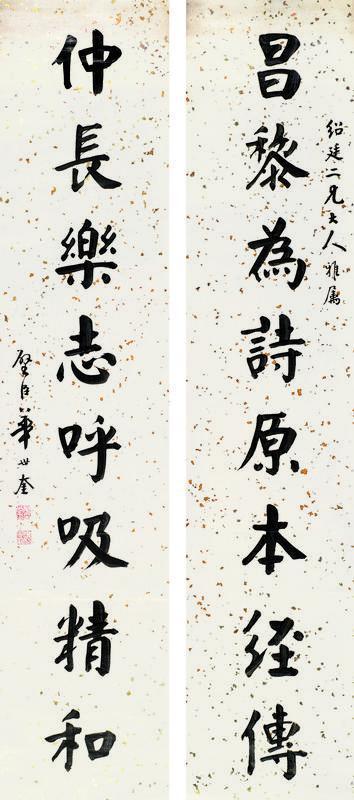 紹廷二兄大人雅属
昌黎為詩原本經傳
仲長樂志呼吸精和
璧臣華世奎